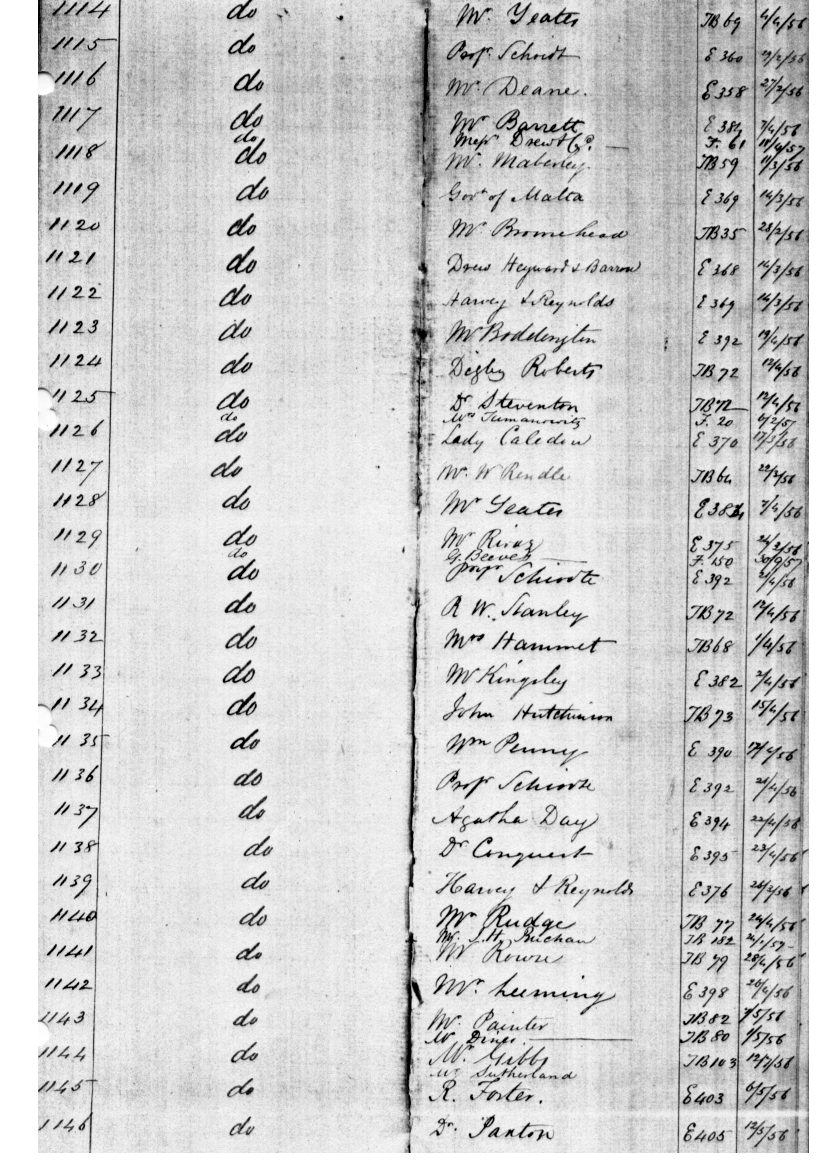 1114 do Mr. Yeates TB 69 4/4/56
1115 do Profr Schiodt E 360 29/2/56
1116 do Mr. Deane. E 358 27/2/56
1117 do Mr Barrett E 384 7/4/56
do Messrs Drew & Co. — F. 61 11/4/57
1118 do Mr. Maberley. TB 59 11/3/56
1119 do Govt of Malta E 369 14/3/56
1120 do Mr. Bromehead TB 35 23/2/56
1121 do Drew Heyward & Barron E 368 14/3/56
1122 do Harvey & Reynolds E 369 14/3/56
1123 do Mr Boddington E 392 19/4/56
1124 do Digby Roberts TB 72 12/4/56
1125 do Dr Steventon TB 72 12/4/56
do Mrs Tumanowitz F. 20 6/2/57
1126 do Lady Caledon E 370 17/3/56
1127 do Mr. W Rendle TB 64
1128 do Mr Yeates E 384 7/4/56
1129 do Mr Rivaz E 375
do G. Beeves — F. 150 30/9/57
1130 do Profr Schiodte E 392 21/4/56
1131 do R W. Stanley TB 72 12/4/56
1132 do Mrs Hammet TB 68 1/4/56
1133 do Mr Kingsley E 382 2/4/56
1134 do John Hutchinson TB 73 15/4/56
1135 do Wm Penney E 390 17/4/56
1136 do Profr Schiodte E 392 21/4/56
1137 do Agatha Day E 394 22/4/56
1138 do Dr Conquest E 395 23/4/56
1139 do Harvey & Reynolds E 376
1140 do Mr Rudge TB 77 24/4/56
Mr. J. H. Buchan TB 182
1141 do Mr Rowse TB 79 28/4/56
1142 do Mr. Leeming E 398 26/4/56
1143 do Mr. Painter TB 82 7/5/56
Mr. Dines — TB 80 1/5/56
1144 do Mr. Gibbs TB 103 12/7/56
Mr Sutherland
1145 do R. Forster. E 403 6/5/56
1146 do Dr. Paxton E 405 12/5/56